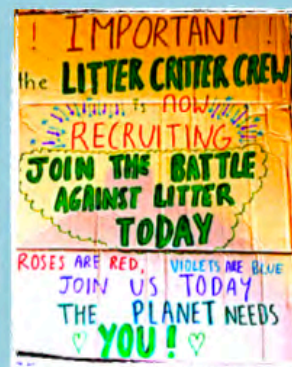 ! IMPORTANT !
the LITTER CRITTER CREW
is NOW
RECRUITING
JOIN THE BATTLE
AGAINST LITTER
TODAY
ROSES ARE RED, VIOLETS ARE BLUE
JOIN US TODAY
THE PLANET NEEDS
♡ YOU! ♡